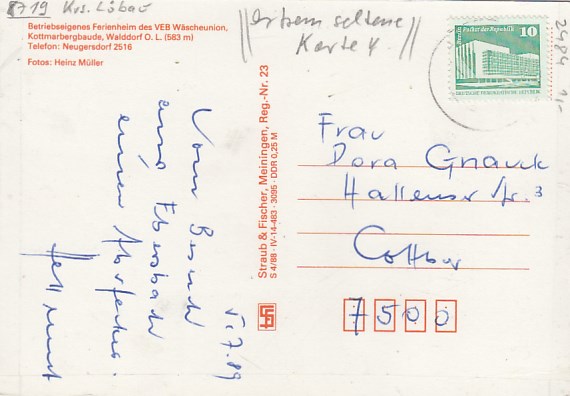 8719 Krs. Löbau
Betriebseigenes Ferienheim des VEB Wäscheunion,
Kottmarbergbaude, Walddorf O. L. (583 m)
Telefon: Neugersdorf 2516
Fotos: Heinz Müller
extrem seltene
Karte
10
Palast der Republik
DEUTSCHE DEMOKRATISCHE REPUBLIK
2484
Straub & Fischer, Meiningen, Reg.-Nr. 23
S 4/88 · IV-14-483 · 3095 · DDR 0,25 M
Frau
Dora Gnauck
Hallenser Str. 3
Cottbus
7500
5.7.89
Vom Besuch
aus Ebersbach
einen
Hellmut